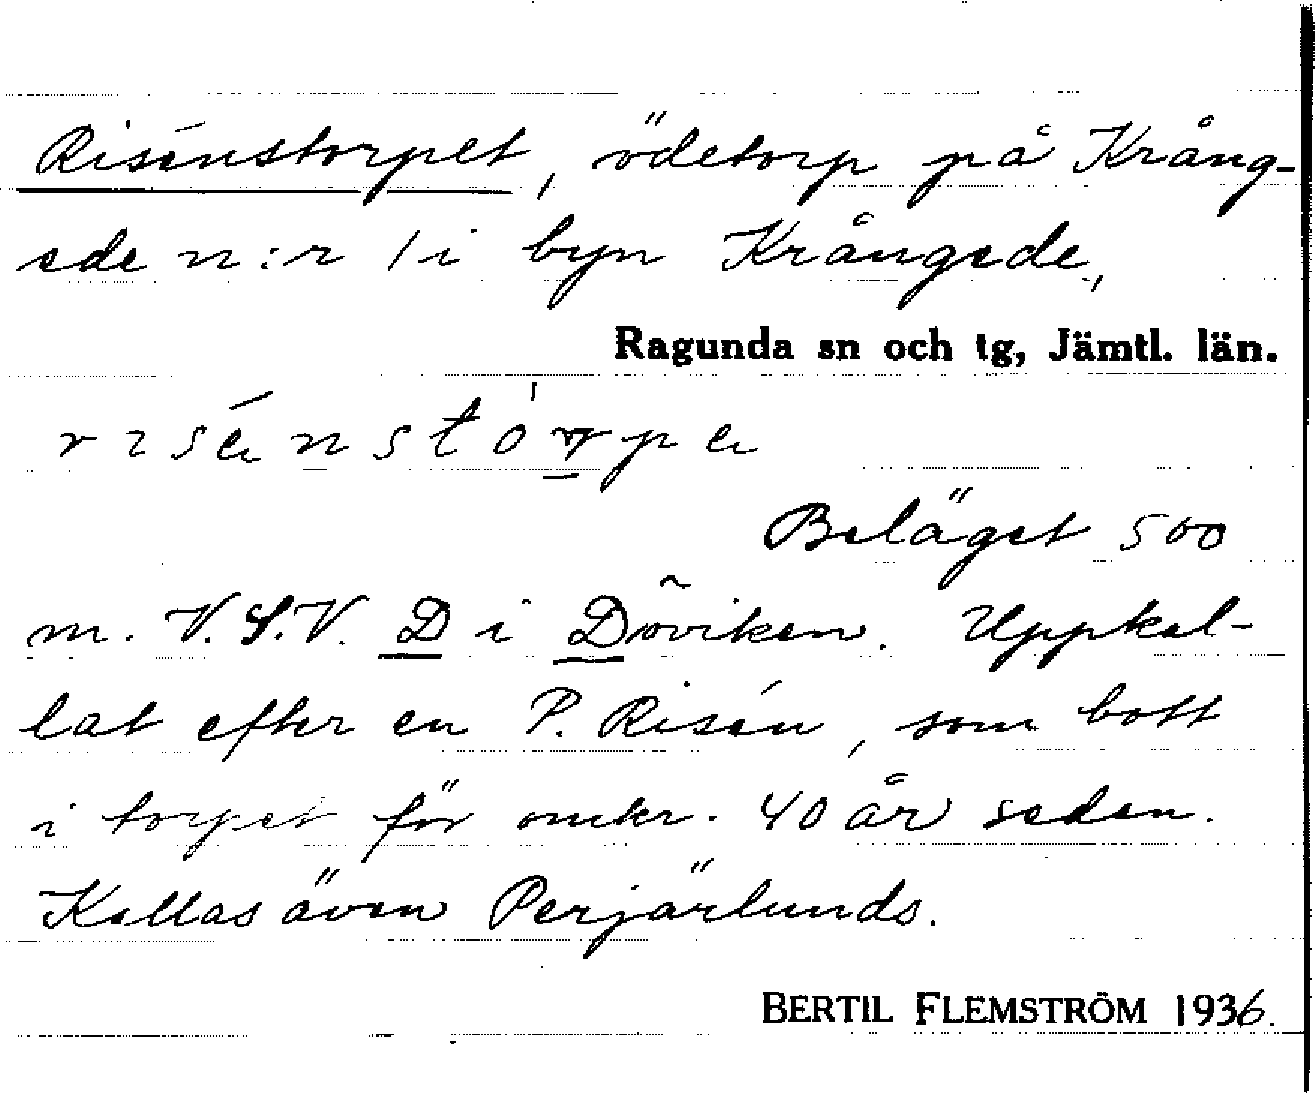 Risénstorpet, ödetorp på Krång-
ede n:r 1 i byn Krångede,
Ragunda sn och tg, Jämtl. län.
Beläget 500
m. V.S.V. D i Döviken. Uppkal-
lat efter en P. Risén, som bott
i torpet för omkr. 40 år sedan.
Kallas även Perjärlunds.
BERTIL FLEMSTRÖM 1936.